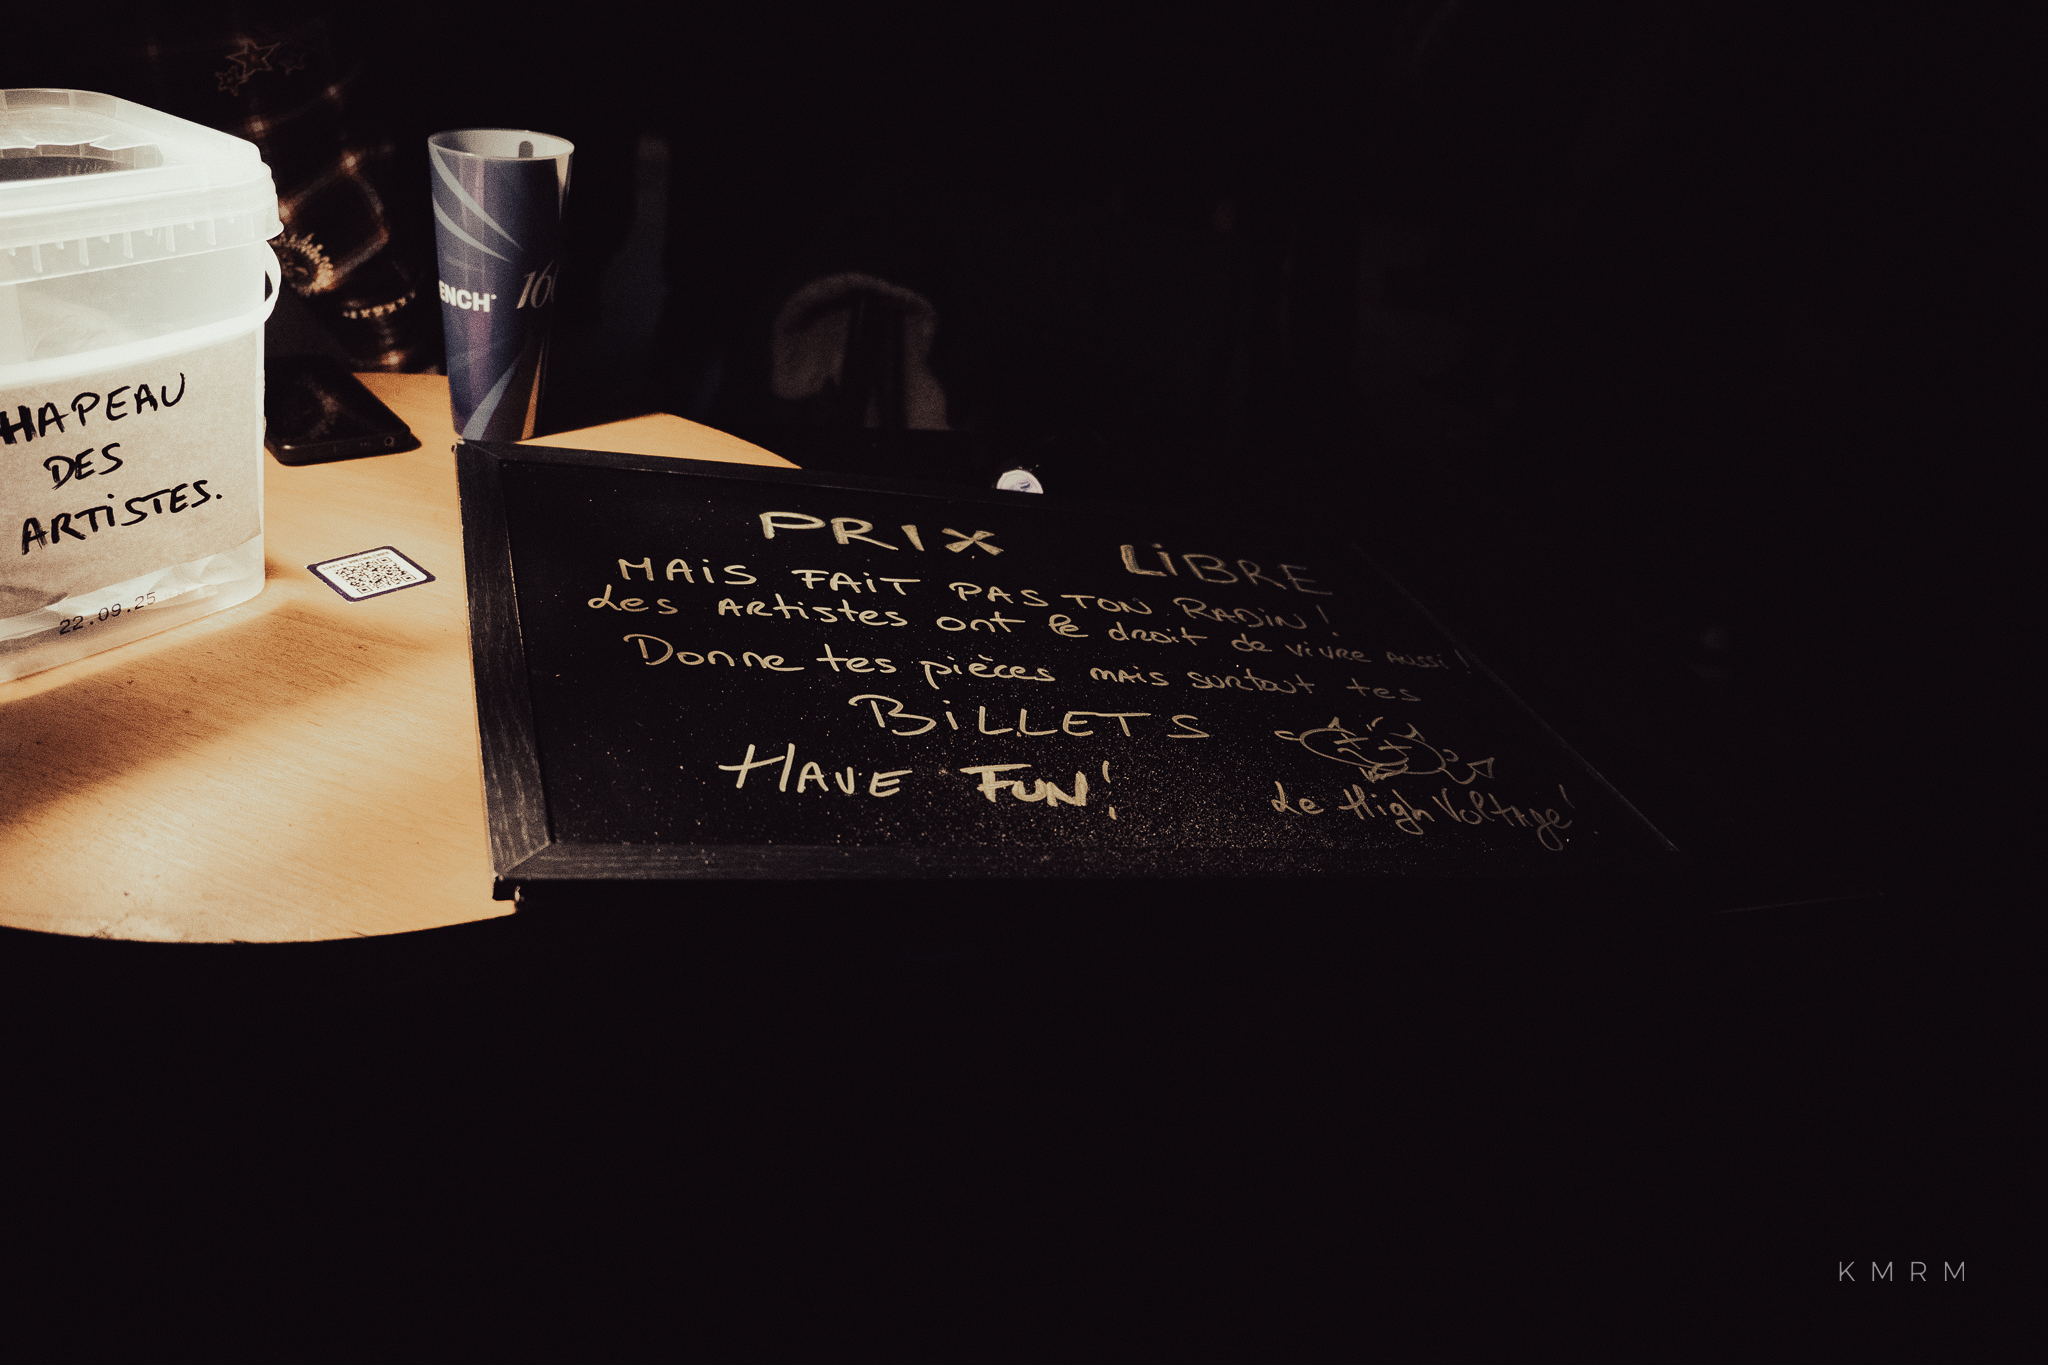 HAPEAU
DES
ARTiSTES.
22.09.25
ENCH
PRIX LiBRE
MAiS FAiT PAS TON RADiN!
Les ARtistes ont le droit de vivre Aussi!
Donne tes pièces mAis surtout tes
BiLLETS
HAVE FUN!
Le High VoltAge!
KMRM